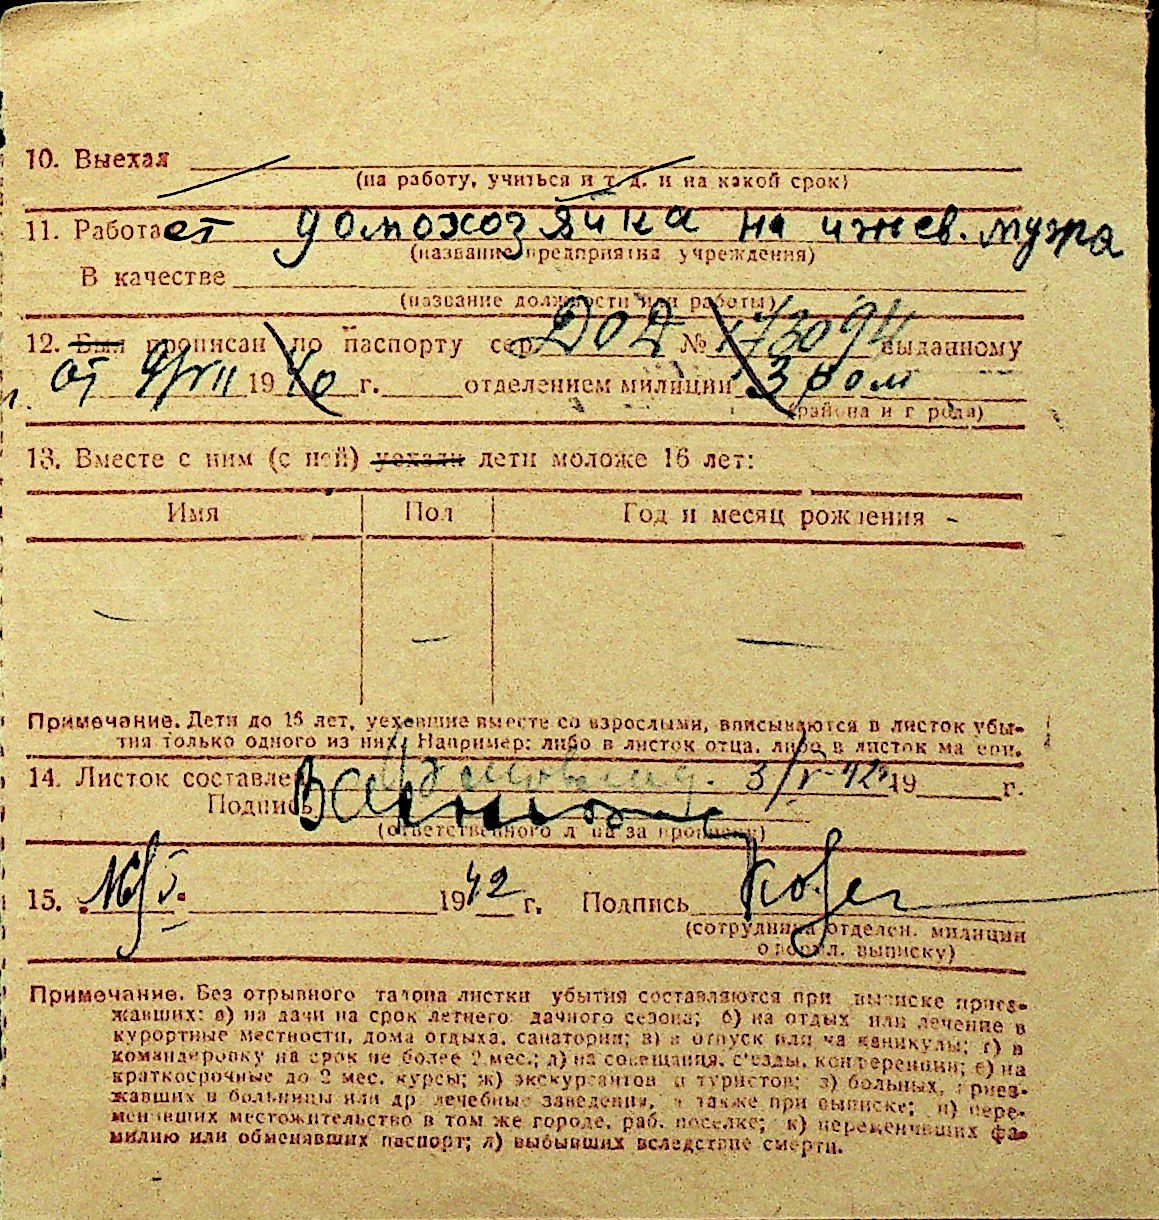 10. Выехал
(на работу, учиться и т. д. и на какой срок)
11. Работает домохозяйка на ижев. мужа
(название предприятия учреждения)
В качестве
(название должности или работы)
12. Был прописан по паспорту сер. ДОД № выданному
от 9/VII 1940 г. отделением милиции 3 ром
(района и города)
13. Вместе с ним (с ней) уехали дети моложе 16 лет:
Имя Пол Год и месяц рождения
Примечание. Дети до 15 лет, уехевшие вместе со взрослыми, вписываются в листок убы-
тия только одного из них. Например: либо в листок отца, либо в листок матери.
14. Листок составлен 3/V-42 19 г.
Подпись
(ответственного лица за прописку)
15. 16/V. 1942 г. Подпись
(сотрудника отделен. милиции
оформл. выписку)
Примечание. Без отрывного талона листки убытия составляются при выписке приез-
жавших: а) на дачи на срок летнего дачного сезона; б) на отдых или лечение в
курортные местности, дома отдыха, санатории; в) в отпуск или на каникулы; г) в
командировку на срок не более 2 мес.; д) на совещания, с'езды, конференции; е) на
краткосрочные до 2 мес. курсы; ж) экскурсантов и туристов; з) больных, приез-
жавших в больницы или др. лечебные заведения, а также при выписке; и) пере-
менивших местожительство в том же городе, раб. поселке; к) переменивших фа-
милию или обменявших паспорт; л) выбывших вследствие смерти.